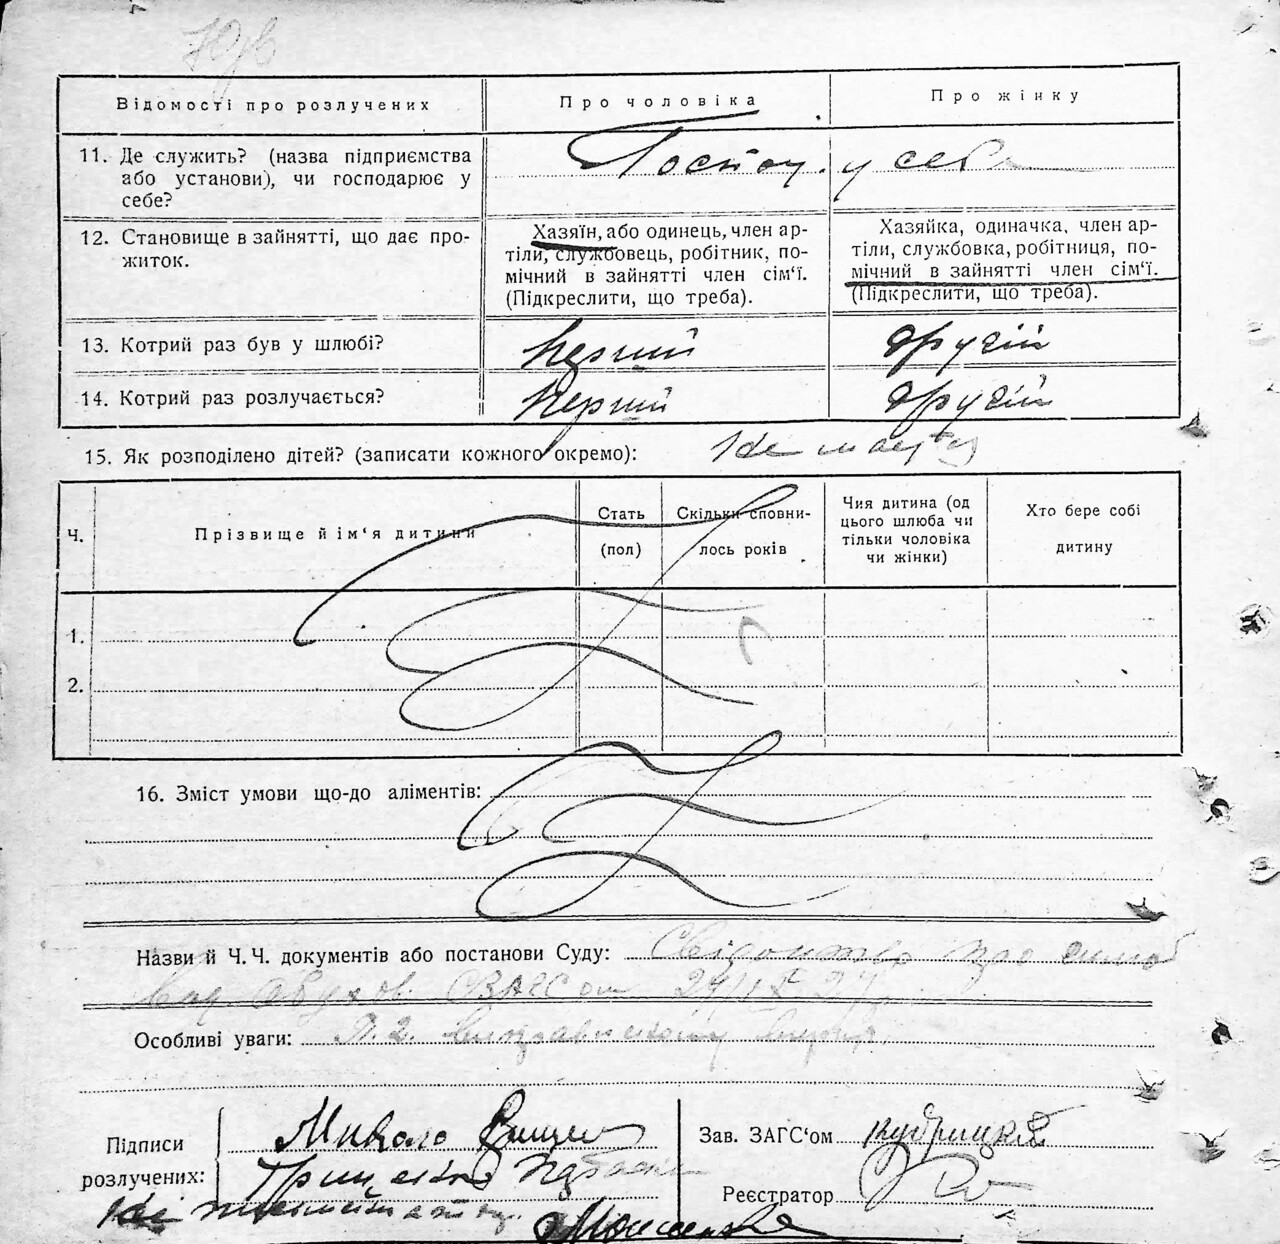 Відомості про розлучених
Про чоловіка
Про жінку
11. Де служить? (назва підприємства
або установи), чи господарює у
себе?
у себе
12. Становище в зайнятті, що дає про-
житок.
Хазяїн, або одинець, член ар-
тіли, службовець, робітник, по-
мічний в зайнятті член сім'ї.
(Підкреслити, що треба).
Хазяйка, одиначка, член ар-
тіли, службовка, робітниця, по-
мічний в зайнятті член сім'ї.
(Підкреслити, що треба).
13. Котрий раз був у шлюбі?
Перший
другий
14. Котрий раз розлучається?
Перший
другий
15. Як розподілено дітей? (записати кожного окремо):
Не мають
Ч.
Прізвище й ім'я дитини
Стать
(пол)
Скільки сповни-
лось років
Чия дитина (од
цього шлюба чи
тільки чоловіка
чи жінки)
Хто бере собі
дитину
1.
2.
16. Зміст умови що-до аліментів:
Назви й Ч. Ч. документів або постанови Суду: Свідоцтво про шлюб
Особливі уваги: П. 2.
Підписи
розлучених:
Микола
Зав. ЗАГС'ом Кудрицкий
Реєстратор